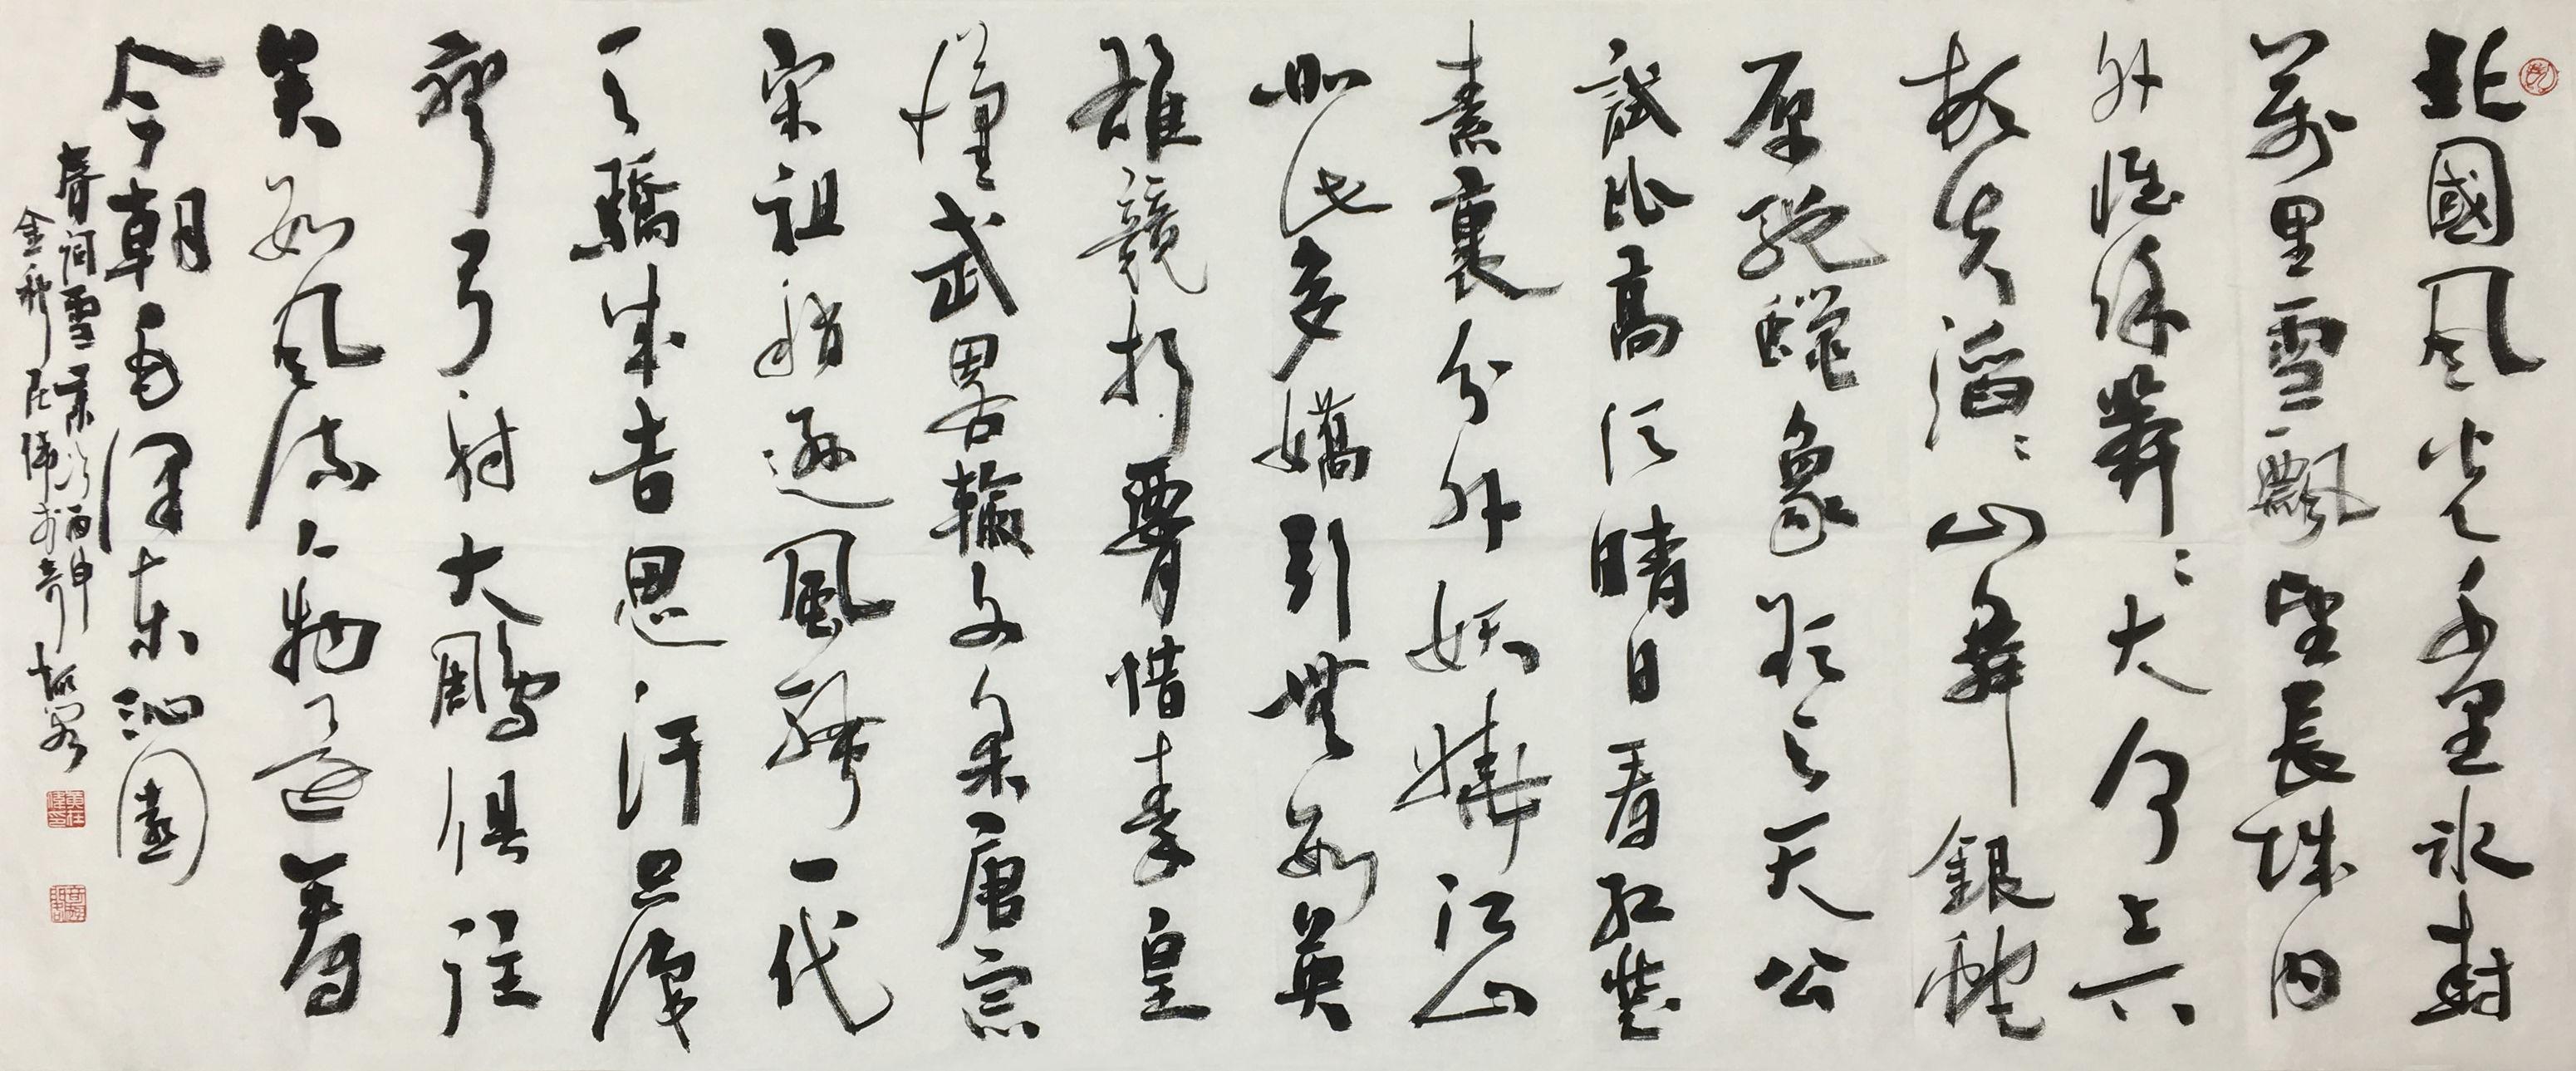 北國風光千里冰封
萬里雪飄望長城内
外惟餘莽〻大河上下
頓失滔〻山舞銀蛇
原馳蠟象欲与天公
試比高須晴日看紅裝
素裹分外妖嬈江山
如此多嬌引無數英
雄競折腰惜秦皇
漢武畧輸文采唐宗
宋祖稍遜風騷一代
天驕成吉思汗只識
彎弓射大鵰俱往
矣數風流人物還看
今朝毛澤東沁園
春詞雪 丙申
金秋